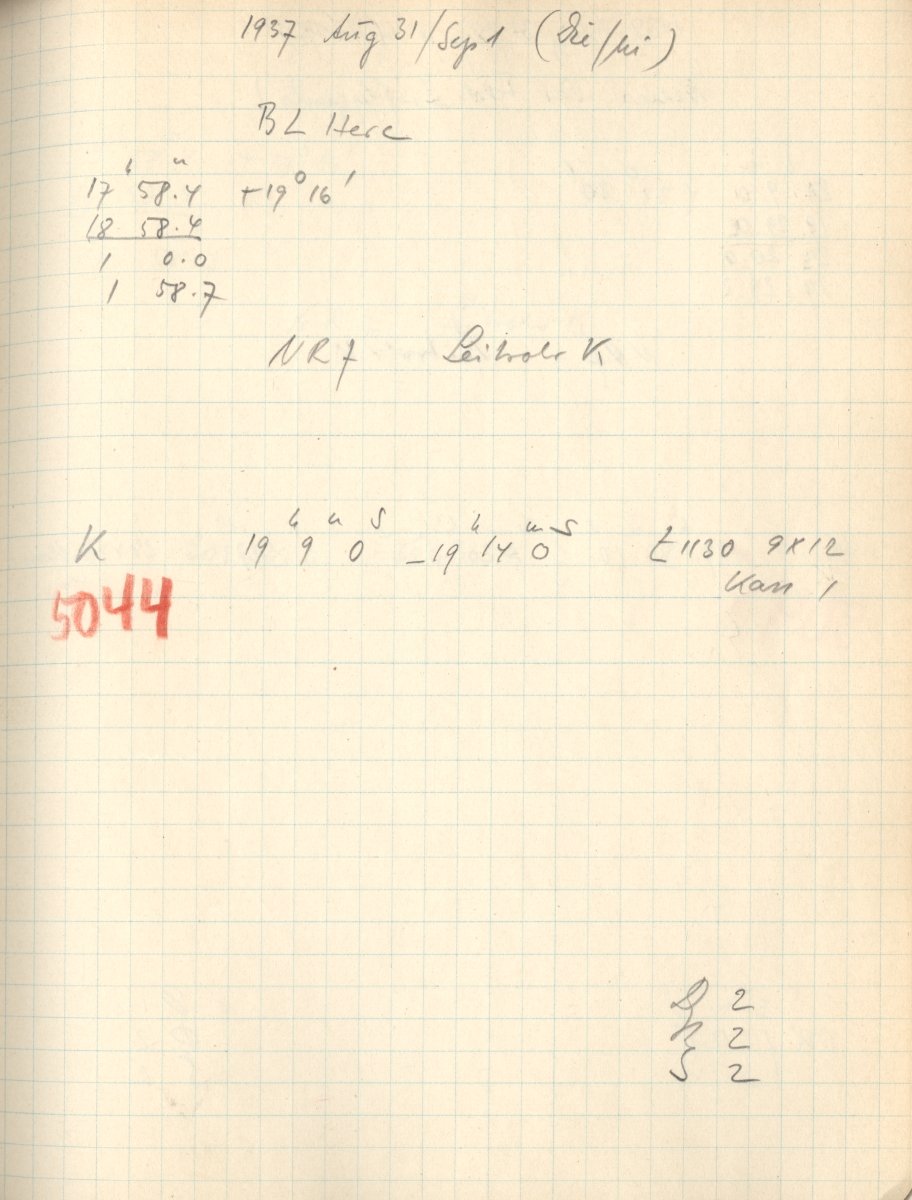 1937 Aug 31/Sep 1 (Die/Mi)
BL Herc
17ʰ 58.4ᵐ +19° 16'
18 58.4
1 0.0
1 58.7
NR 7 Leitrohr K
K 19ʰ 9ᵐ 0ˢ – 19ʰ 14ᵐ 0ˢ 1130 9x12
Kass 1
5044
D 2
R 2
S 2